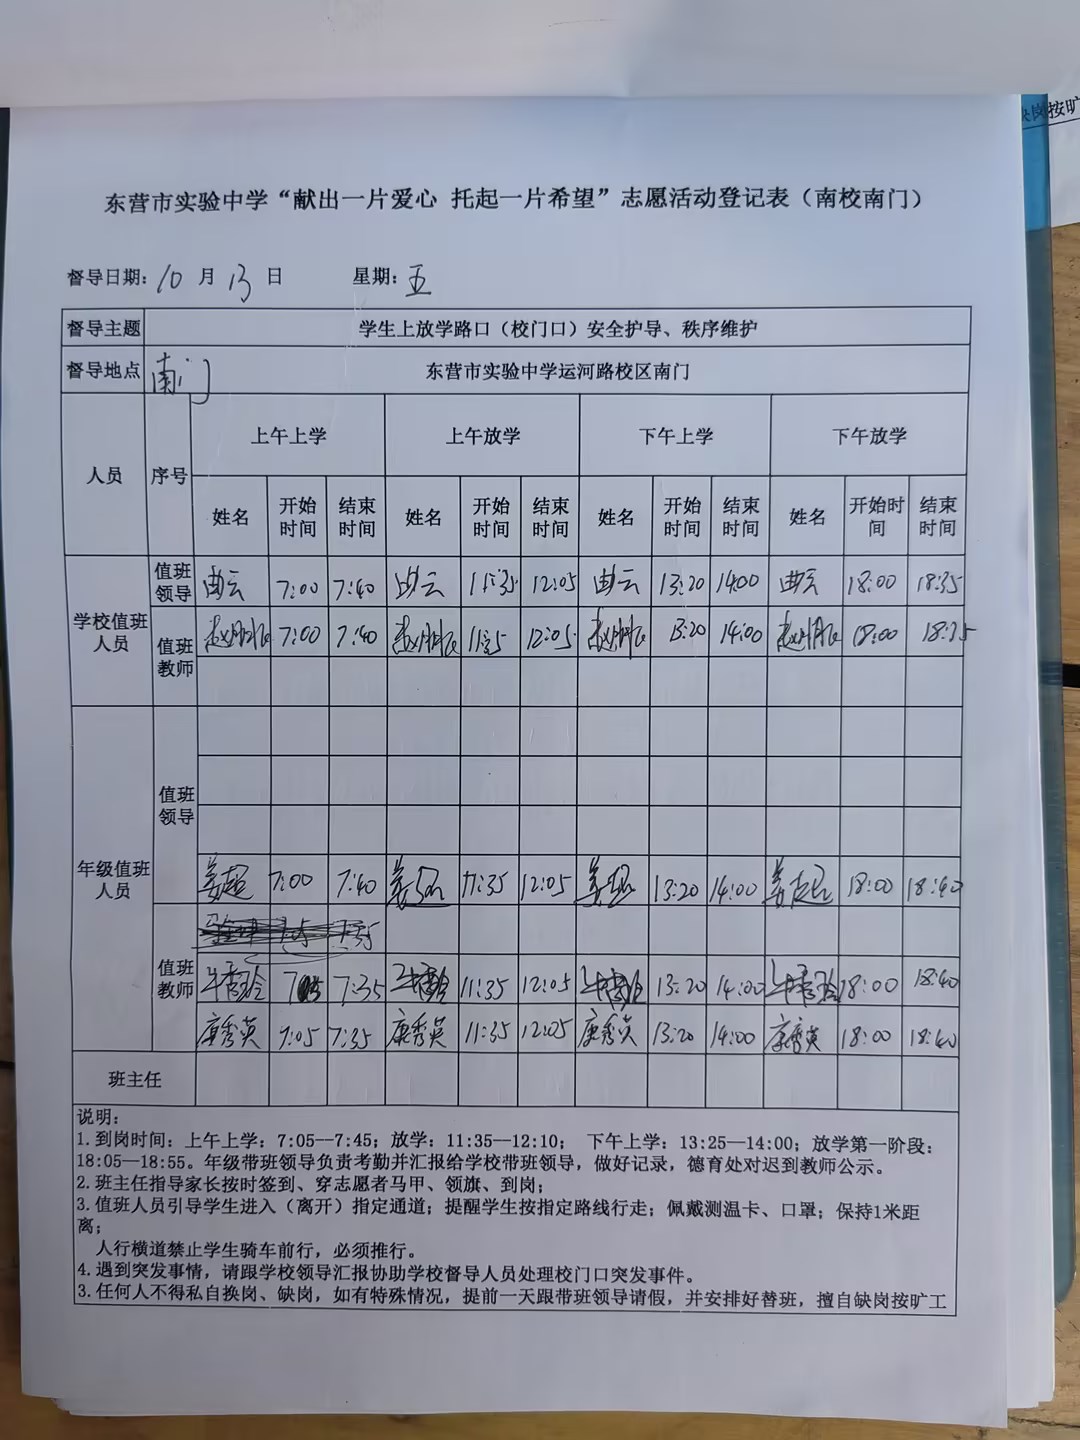 缺岗按旷
东营市实验中学“献出一片爱心 托起一片希望”志愿活动登记表（南校南门）
督导日期：10 月 13 日 星期：五
督导主题 学生上放学路口（校门口）安全护导、秩序维护
督导地点 南门 东营市实验中学运河路校区南门
人员 序号 上午上学 上午放学 下午上学 下午放学
姓名 开始时间 结束时间 姓名 开始时间 结束时间 姓名 开始时间 结束时间 姓名 开始时间 结束时间
学校值班人员 值班领导 曲云 7:00 7:40 曲云 11:35 12:05 曲云 13:20 14:00 曲云 18:00 18:35
值班教师 7:00 7:40 11:35 12:05 13:20 14:00 18:00 18:35
年级值班人员 值班领导
姜超 7:00 7:40 姜超 11:35 12:05 姜超 13:20 14:00 姜超 18:00 18:40
值班教师
7:05 7:35 11:35 12:05 13:20 14:00 18:00 18:40
康秀英 7:05 7:35 康秀英 11:35 12:05 康秀英 13:20 14:00 康秀英 18:00 18:40
班主任
说明：
1.到岗时间：上午上学：7:05--7:45；放学：11:35—12:10； 下午上学：13:25—14:00；放学第一阶段：
18:05—18:55。年级带班领导负责考勤并汇报给学校带班领导，做好记录，德育处对迟到教师公示。
2.班主任指导家长按时签到、穿志愿者马甲、领旗、到岗；
3.值班人员引导学生进入（离开）指定通道；提醒学生按指定路线行走；佩戴测温卡、口罩；保持1米距
离；
人行横道禁止学生骑车前行，必须推行。
4.遇到突发事情，请跟学校领导汇报协助学校督导人员处理校门口突发事件。
3.任何人不得私自换岗、缺岗，如有特殊情况，提前一天跟带班领导请假，并安排好替班，擅自缺岗按旷工